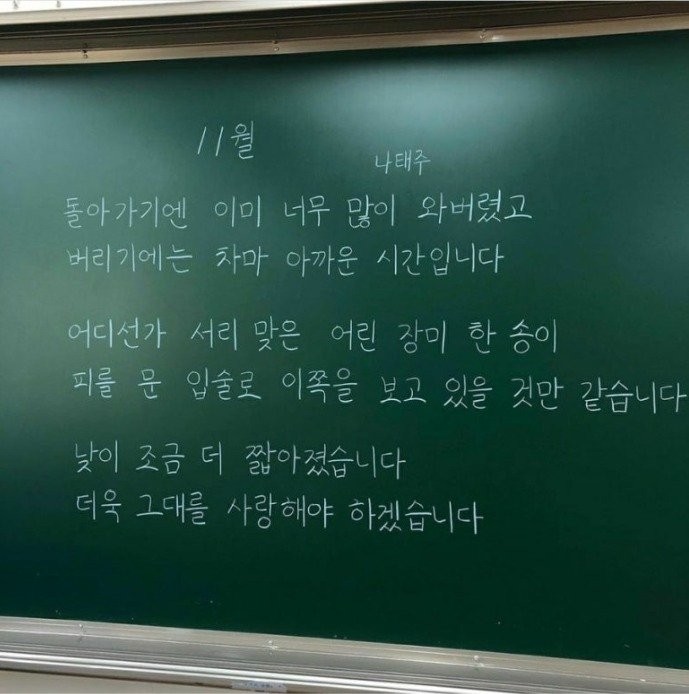 11월
나태주
돌아가기엔 이미 너무 많이 와버렸고
버리기에는 차마 아까운 시간입니다
어디선가 서리 맞은 어린 장미 한 송이
피를 문 입술로 이쪽을 보고 있을 것만 같습니다
낮이 조금 더 짧아졌습니다
더욱 그대를 사랑해야 하겠습니다